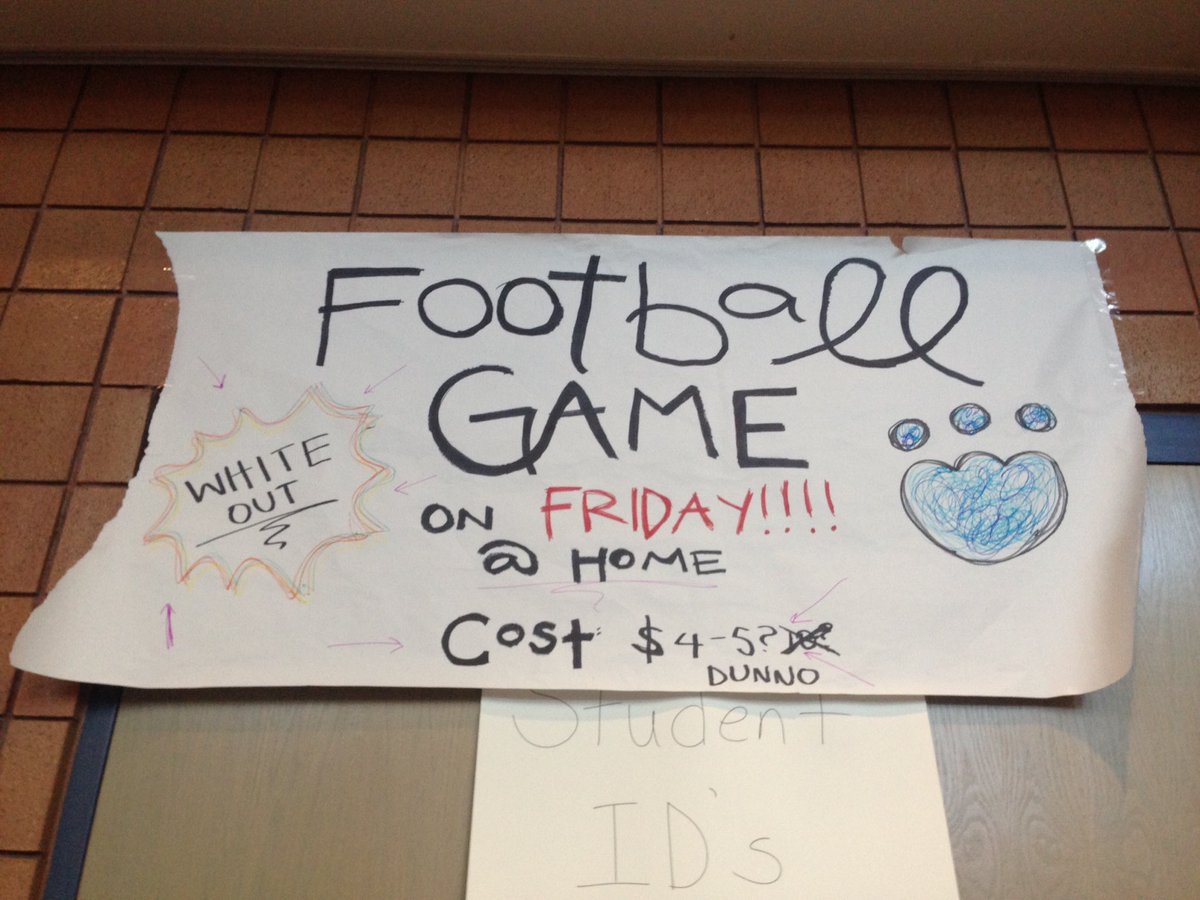 Football
GAME
WHITE
OUT
ON FRIDAY!!!!
@ HOME
Cost: $4-5?
DUNNO
Student
ID's